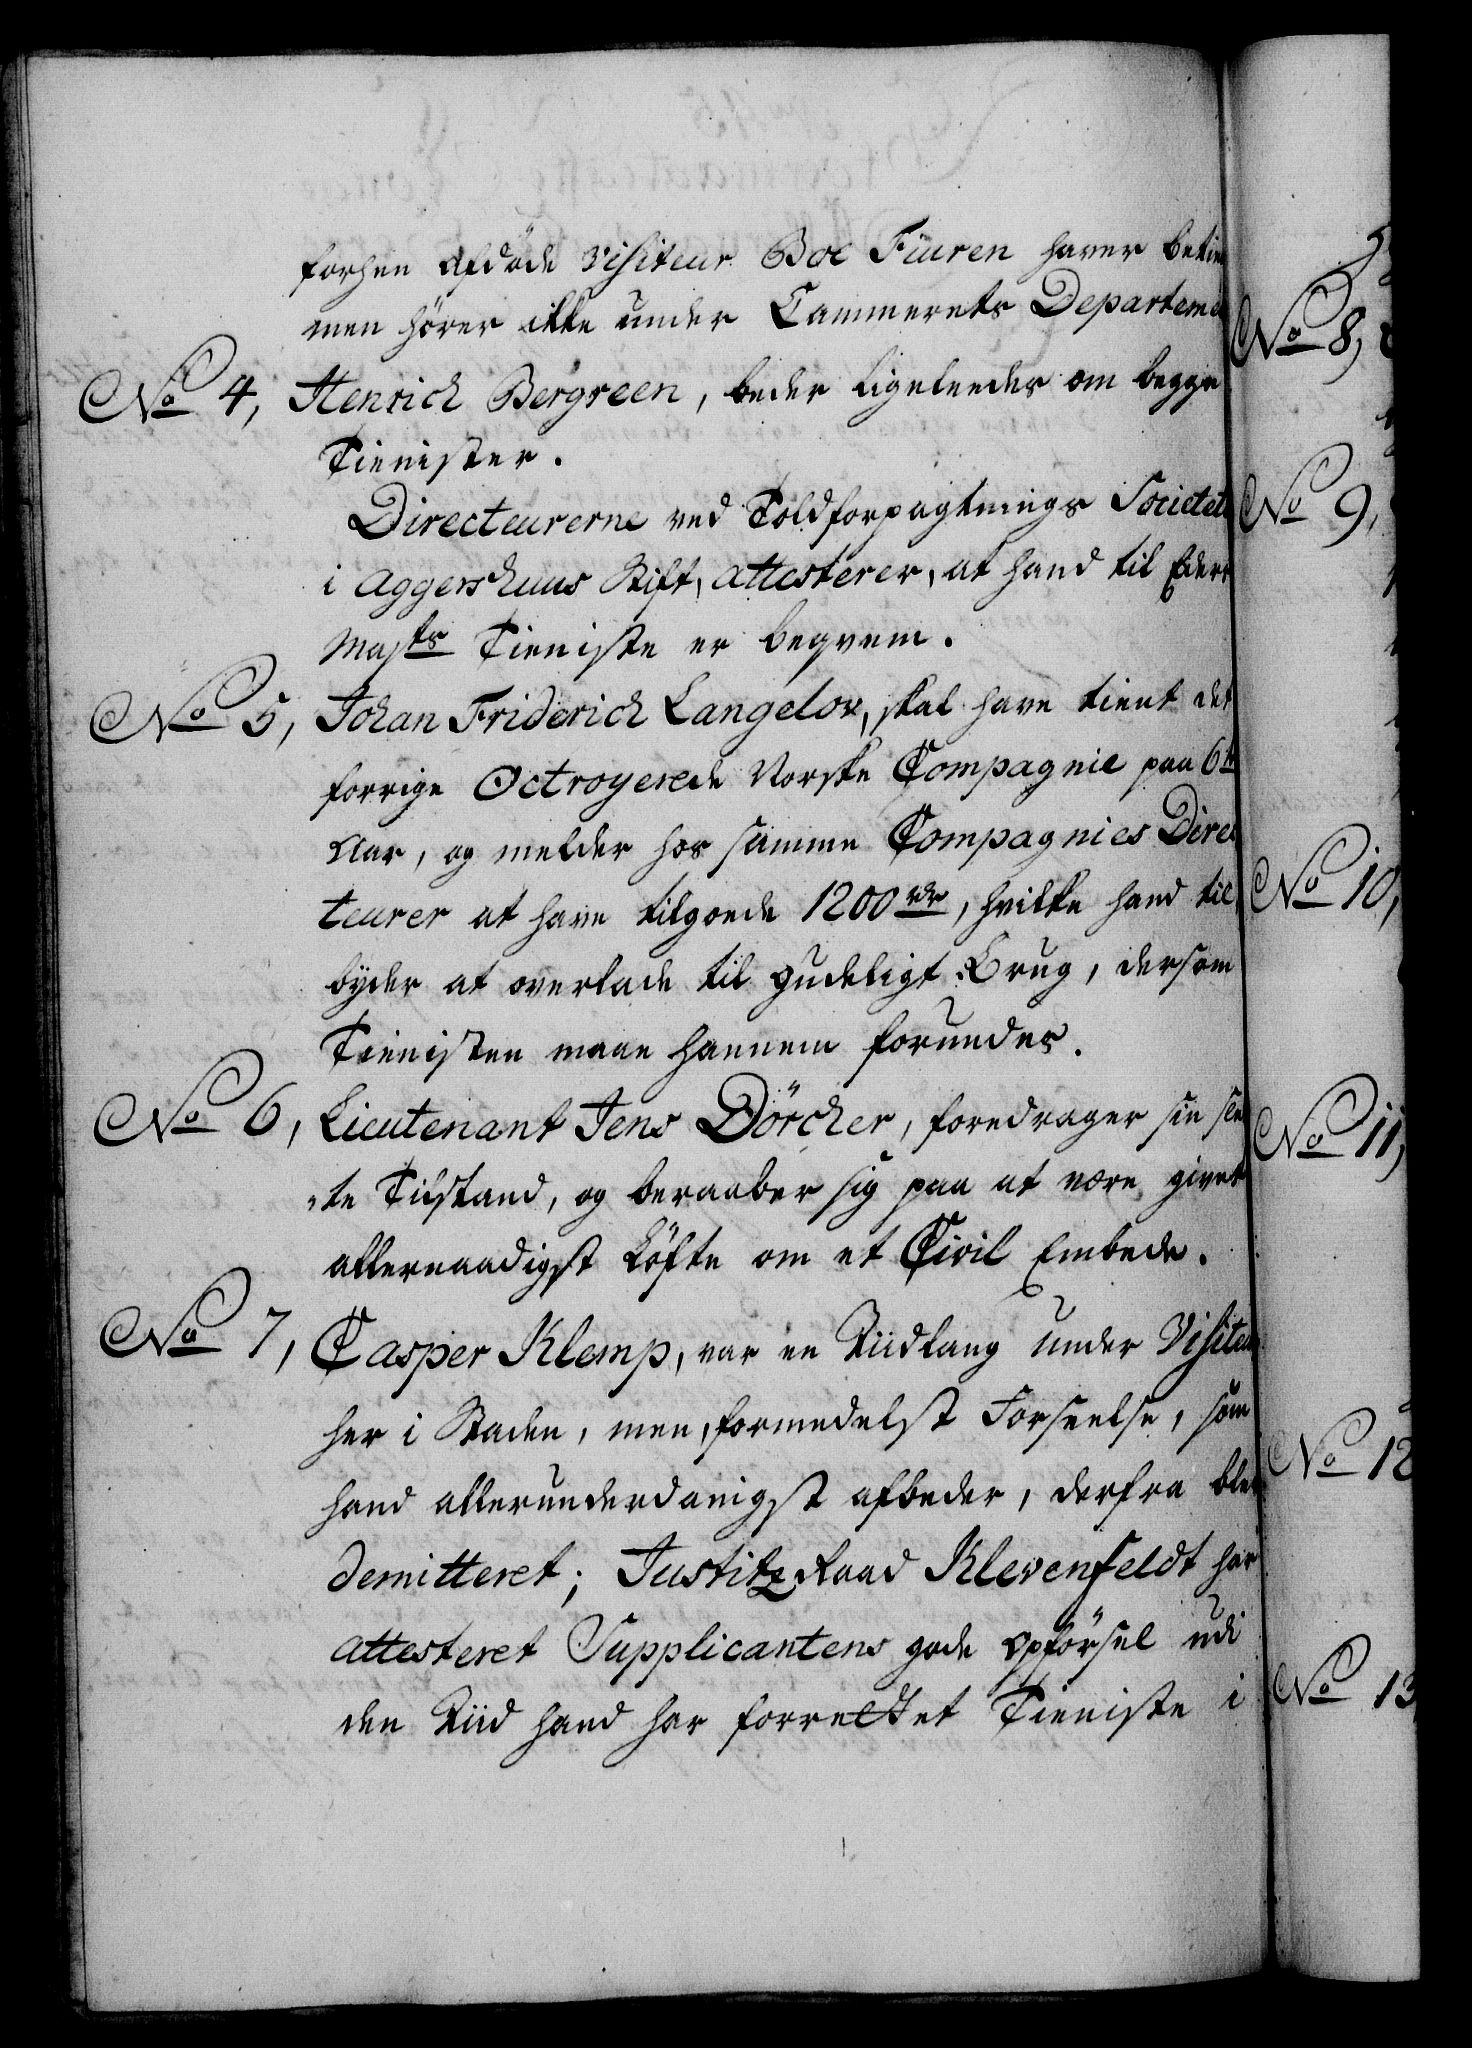 forhen afdöde Visiteur Boe Fiuren haver betie
men hörer ikke under Cammerets Departeme
No 4, Henrich Bergreen, beder ligeleedes om begge
Tienister.
Directeurerne ved Toldforpagtnings Societet
i Aggershuus Stift, attesterer, at hand til Eders
Majts Tieniste er beqvem.
No 5, Johan Friderich Langelow, skal have tient det
forrige Octroyerede Norske Compagnie paa 6te
Aar, og melder hos samme Compagnies Direc
teurer at have tilgoede 1200 rdr, hvilke hand til
byder at overlade til gudeligt Brug, dersom
Tienisten maae hannem forundes.
No 6, Lieutenant Jens Dörcher, foredrager sin slet
te Tilstand, og beraaber sig paa at være givet
allernaadigst Löfte om et Civil Embede.
No 7, Casper Klemp, var en Tiidlang under Visiteur
her i Staden, men, formedelst Forseelse, som
hand allerunderdanigst afbeder, derfra blev
demitteret; Justitz Raad Klevenfeldt har
attesteret Supplicantens gode Opförsel udi
den Tiid hand har forrettet Tieniste i
No 8,
No 9,
No 10,
No 11,
No 12
No 13